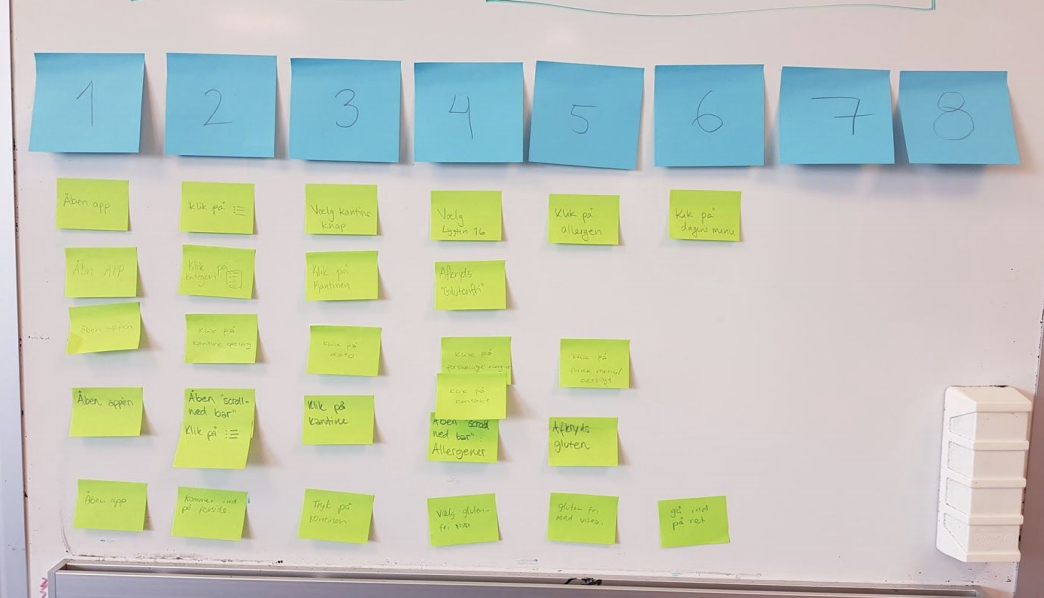 1 2 3 4 5 6 7 8
Åben app
Klik på
Vælg kantine
knap
Vælg
16
Klik på
allergen
Klik på
dagens menu
Åbn APP
Klik på
kategori
Klik på
Kantinen
Afkryds
Åben appen
Klik på
Klik på
Klik på
Klik på
Klik på
Åben appen
Åben "scroll-
ned bar"
Klik på
Klik på
Kantine
Åben "scroll
ned bar"
Allergener
Afkryds
gluten
Åben app
Kommer ind
på forside.
Tryk på
kantinen
Vælg gluten-
fri
gluten fri
mad vises.
gå ind
på ret